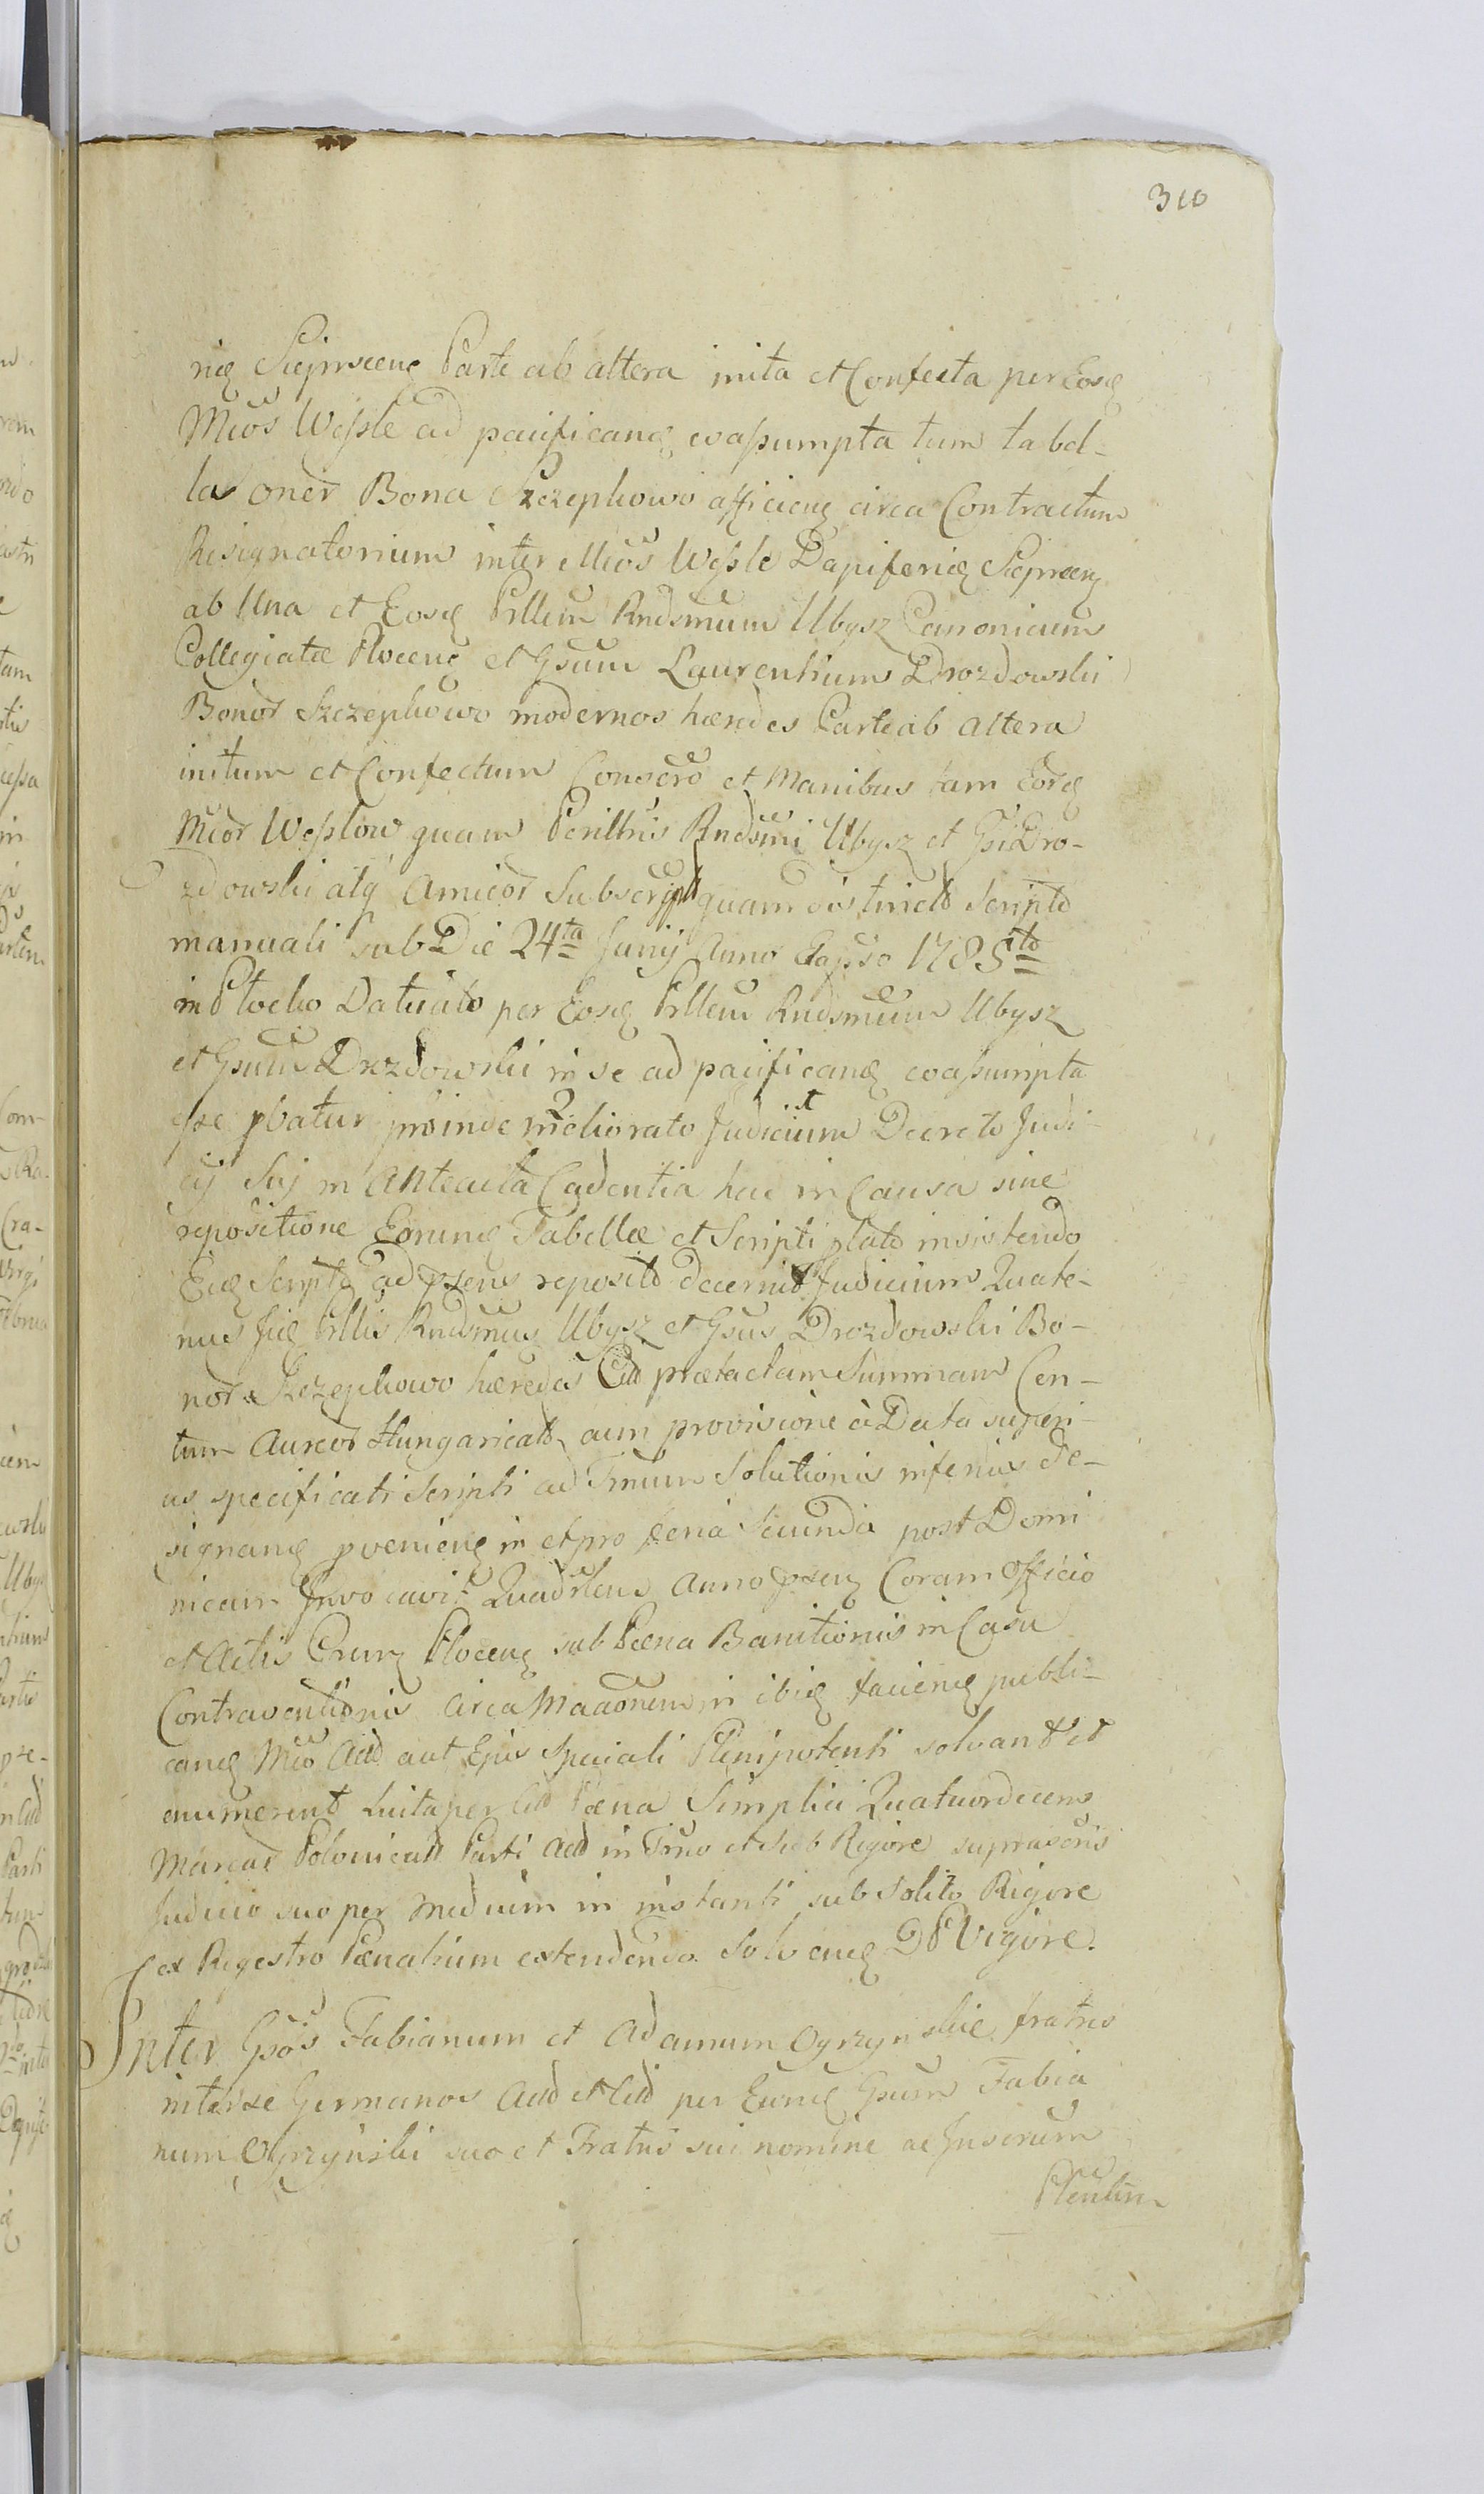 310
rieӕ Sieprscenӕ Parte ab altera inita et Confecta per Eosӕ
Mcos Weſsle ad pacificanӕ evaſsumpta tum tabel-
la oner Bona Szczepkowo afficienӕ circa Contractum
Resignatorium inter Mcos Weſsle Dapiferieӕ Sieprcenӕ
ab Una et Eosӕ Prllem Rndsmum Ubysz Canonicum
Collegiatæ Plocenӕ et Gsum Laurentium Drozdowski
Bonor Szczepkowo modernos hæredes Parte ab altera
initum et Confectum Conscro et Manibus tam Eorӕ
Mcor Weſslow quam Perilltris Rndsmi Ubysz et Gsi Dro-
zdowski atq Amicor Subscript quam distincto Scripto
manuali sub Die 24ta Junij Anno Elapso 1785to
in Plocko Datuato per Eosӕ Prllem Rndsmum Ubysz
et Gsum Drozdowski in se ad pacificanӕ evaſsumpta
eſse pbatur proinde meliorato Judicium Decreto Judi-
cij Sui in Anteacta Cadentia hac in Causa sine
repositione Eorumӕ Tabellæ et Scripti plato insistendo
Eidӕ Scripto ad præns reposito decernit Judicium Quate-
nus Jidӕ Prllis Rndsmus Ubysz et Gsus Drozdowski Bo-
nor Szczepkowo hæredes Citt prætactam Summam Cen-
tum Aureor Hungaricalt cum provisione à Data superi-
us specificati Scripti ad Tmum Solutionis inferius de-
signanӕ pvenienӕ in et pro feria Secunda post Domi
nicam Invocavit Quadrlem Anno præn Coram Officio
et Actis Crum Plocenӕ sub Pœna Banitionis in Casu
Contraventionis circa Maaonem in ibiӕ facienӕ publi-
canӕ Mco Actt aut Ejus Speciali Plenipotenti solvant et
enumerent Luita per Citt Pœna Simplici Quatuordecem
Marcar Polonicalt Parti Actt in Tmo et sub Rigore suprascris
Judicio suo per Medium in instanti sub solito Rigore
ex Regestro Pœnalium extendendo Solvenӕ DP Vigore.
Inter Gsos Fabianum et Adamum Ogrzynskie fratres
inter se Germanos Actt et Citt per Eumӕ Gsum Fabia
num Ogrzynski suo et Fratris sui nomine ac Jnserum
Plentem